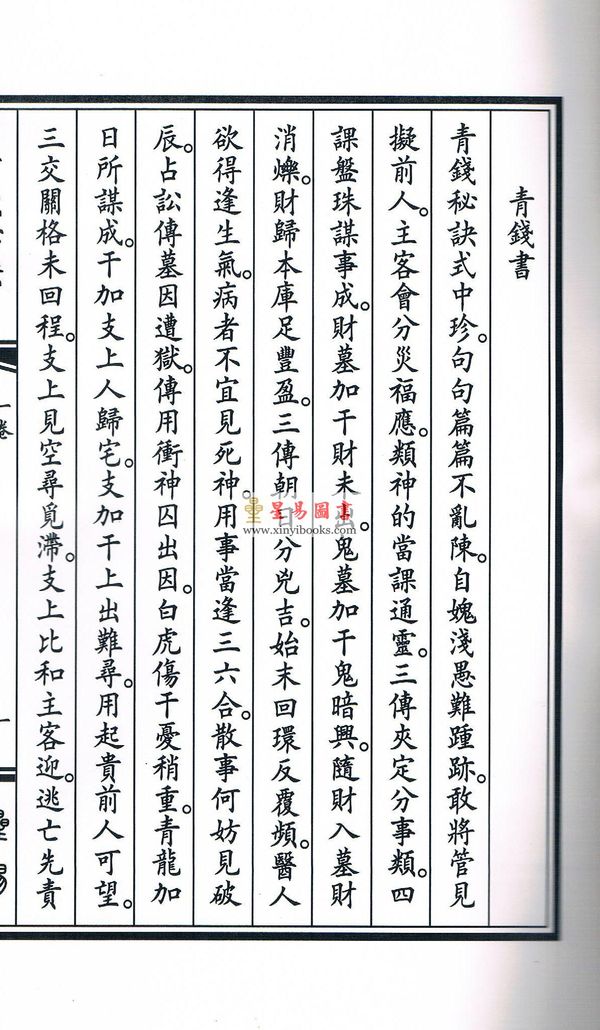 青錢書
青錢秘訣式中珍。句句篇篇不亂陳。自媿淺愚難踵跡。敢將管見
擬前人。主客會分災福應。類神的當課通靈。三傳夾定分事類。四
課盤珠謀事成。財墓加干財未。鬼墓加干鬼暗興。隨財入墓財
消爍。財歸本庫足豐盈。三傳朝日分兇吉。始末回環反覆頻。醫人
欲得逢生氣。病者不宜見死神。用事當逢三六合。散事何妨見破
辰。占訟傳墓因遭獄。傳用衝神囚出因。白虎傷干憂稍重。青龍加
日所謀成。干加支上人歸宅。支加干上出難尋。用起貴前人可望。
三交關格未回程。支上見空尋覓滯。支上比和主客迎。逃亡先責
一卷
一
星易圖書
www.xinyibooks.com